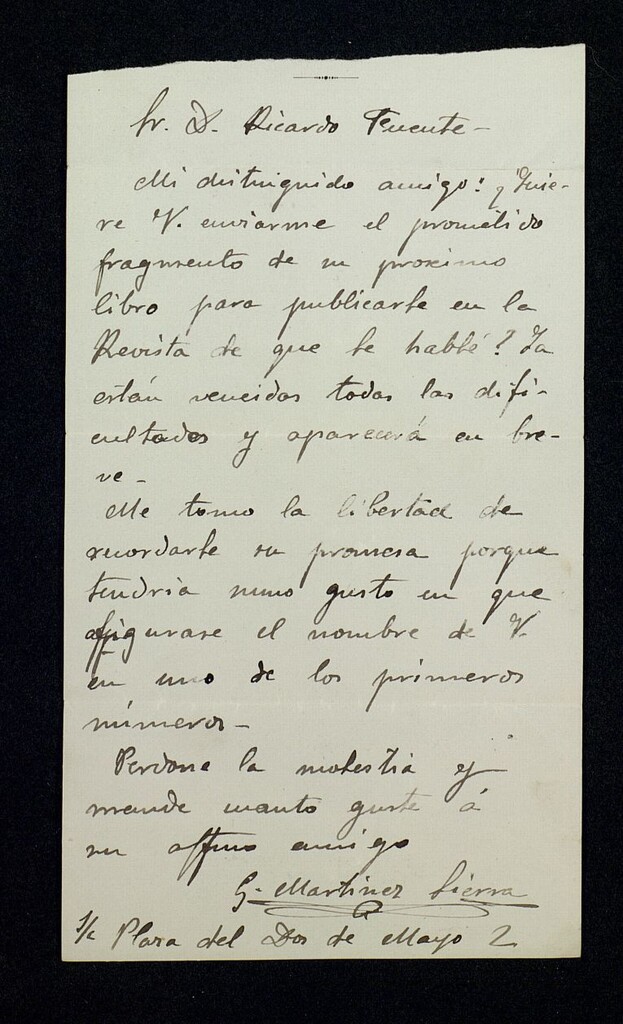 Sr. D. Ricardo Fuente-
Mi distinguido amigo: ¿Quie-
re V. enviarme el prometido
fragmento de su proximo
libro para publicarle en la
Revista de que le hablé? Ya
están vencidas todas las difi-
cultades y aparecerá en bre-
ve-
Me tomo la libertad de
recordarle su promesa porque
tendría sumo gusto en que
figurase el nombre de V.
en uno de los primeros
números-
Perdone la molestia y
mande cuanto guste á
su affmo amigo
G. Martinez Sierra
S/c Plaza del Dos de Mayo 2